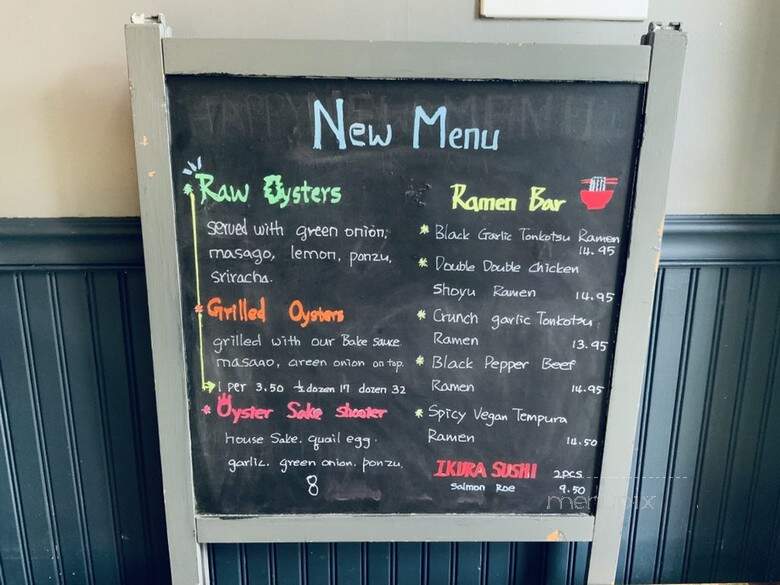 New Menu
Raw Oysters
served with green onion,
masago, lemon, ponzu,
sriracha.
Grilled Oysters
grilled with our Bake sauce
masago, green onion on top.
1 per 3.50 ½ dozen 17 dozen 32
Oyster Sake shooter
House Sake. quail egg.
garlic. green onion. ponzu.
8
Ramen Bar
* Black Garlic Tonkotsu Ramen
14.95
* Double Double chicken
Shoyu Ramen 14.95
* Crunch garlic Tonkotsu
Ramen 13.95
* Black Pepper Beef
Ramen 14.95
* Spicy Vegan Tempura
Ramen 14.50
IKURA SUSHI 2pcs
Salmon Roe 9.50